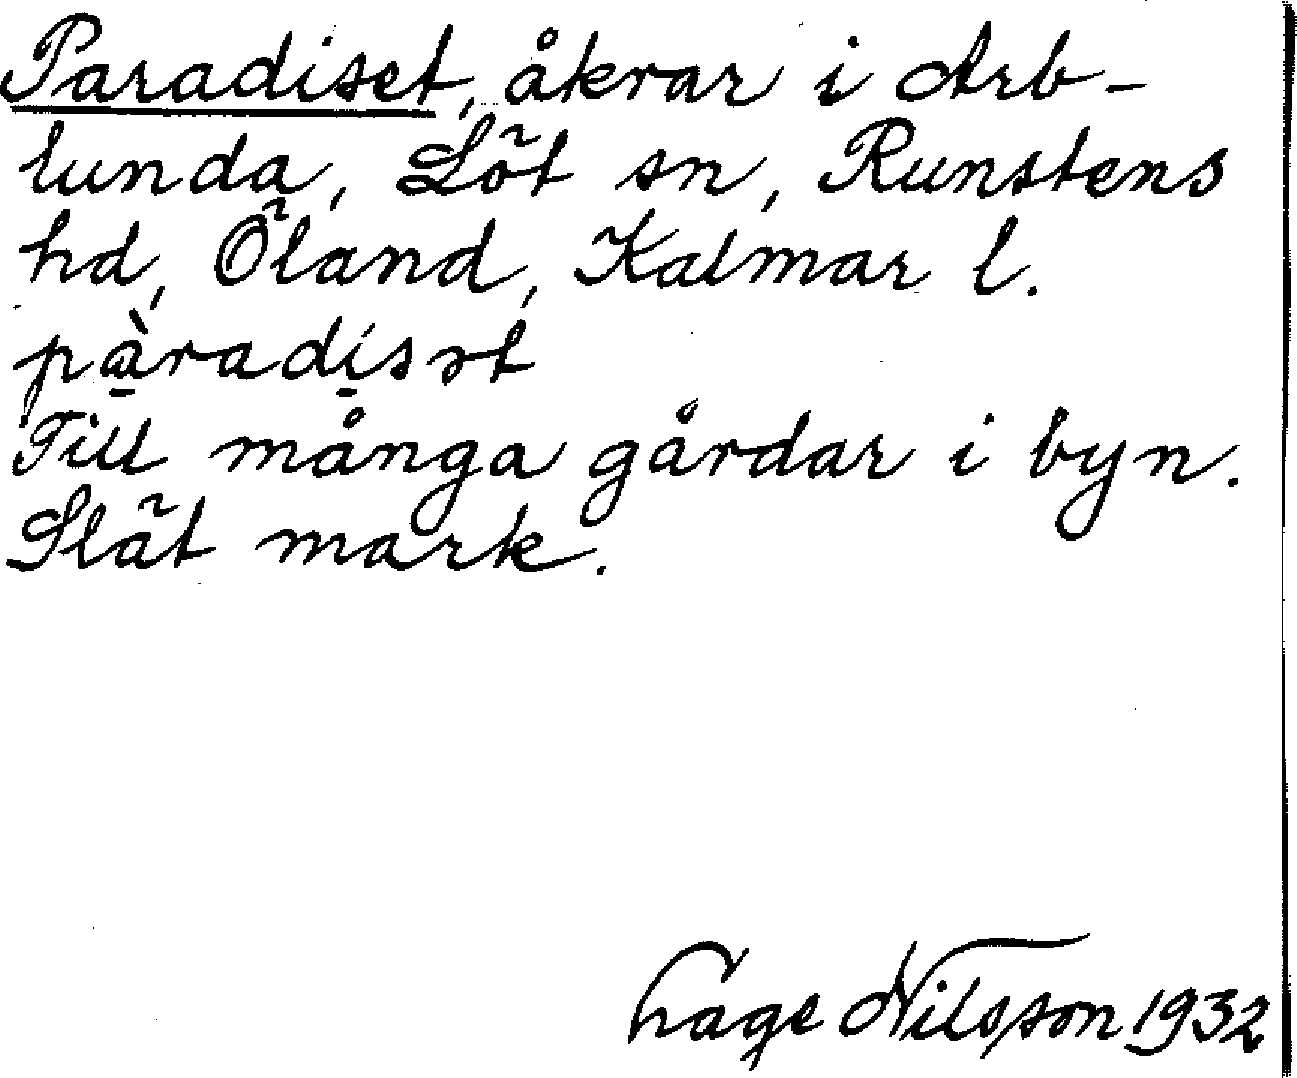 Paradiset, åkrar i Arb-
lunda, Löt sn, Runstens
hd, Öland, Kalmar l.
pà̱radi̱sət
Till många gårdar i byn.
Slät mark.
Hage Nilsson 1932